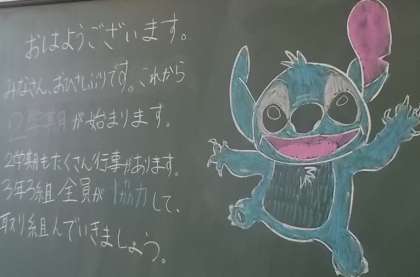 おはようございます。
みなさん、おひさしぶりです。これから
2学期が始まります。
2学期もたくさん行事があります。
3年3組全員が協力して、
取り組んでいきましょう。